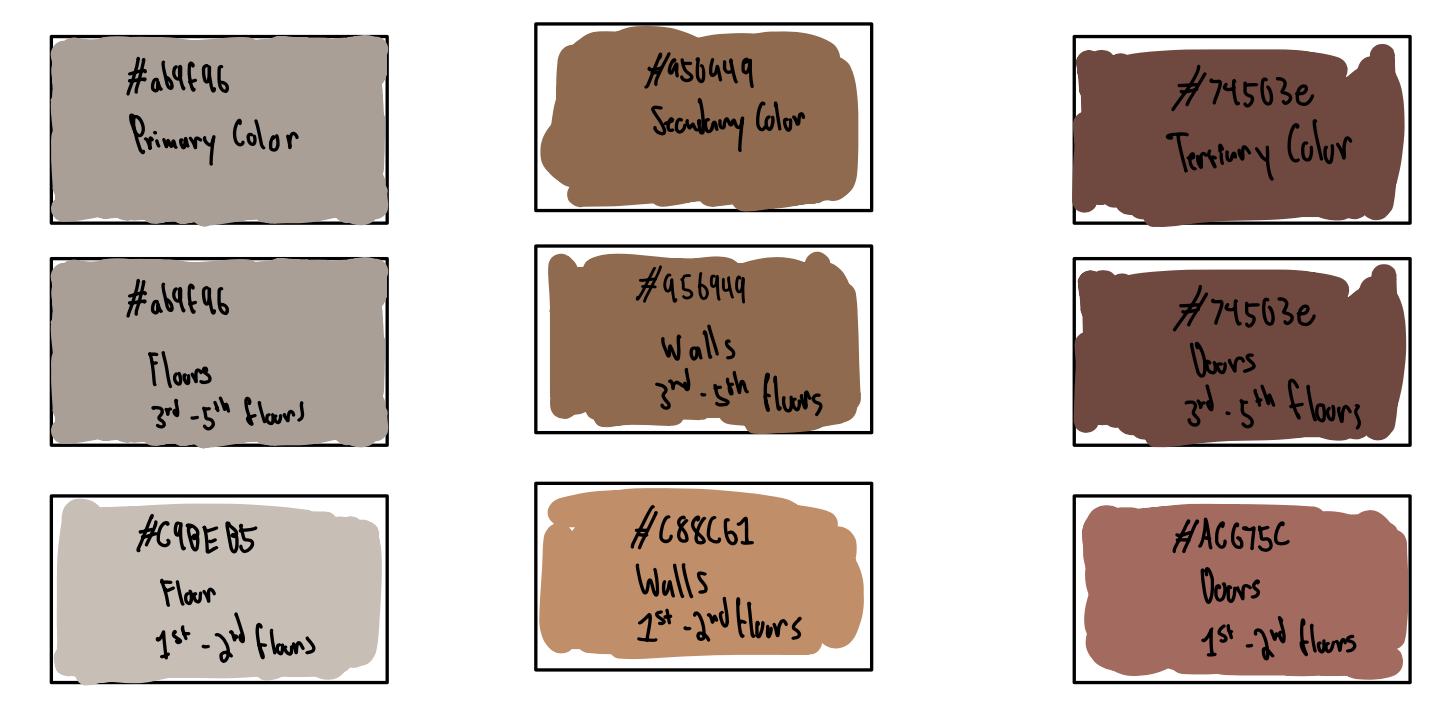 #a69f96
Primary Color
#956949
Secondary Color
#74503e
Tertiary Color
#a69f96
Floors
3rd - 5th floors
#956949
Walls
3rd - 5th floors
#74503e
Doors
3rd - 5th floors
#C9BEB5
Floor
1st - 2nd floors
#C88C61
Walls
1st - 2nd floors
#AC675C
Doors
1st - 2nd floors